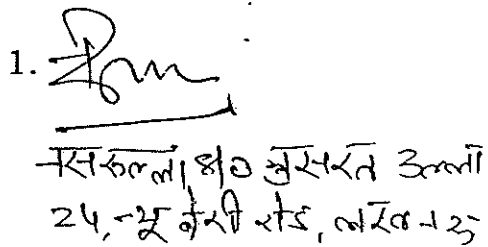 1.
नसरूल्ला S/o नुसरत उल्ला
24, न्यू बेरी रोड, लखनऊ